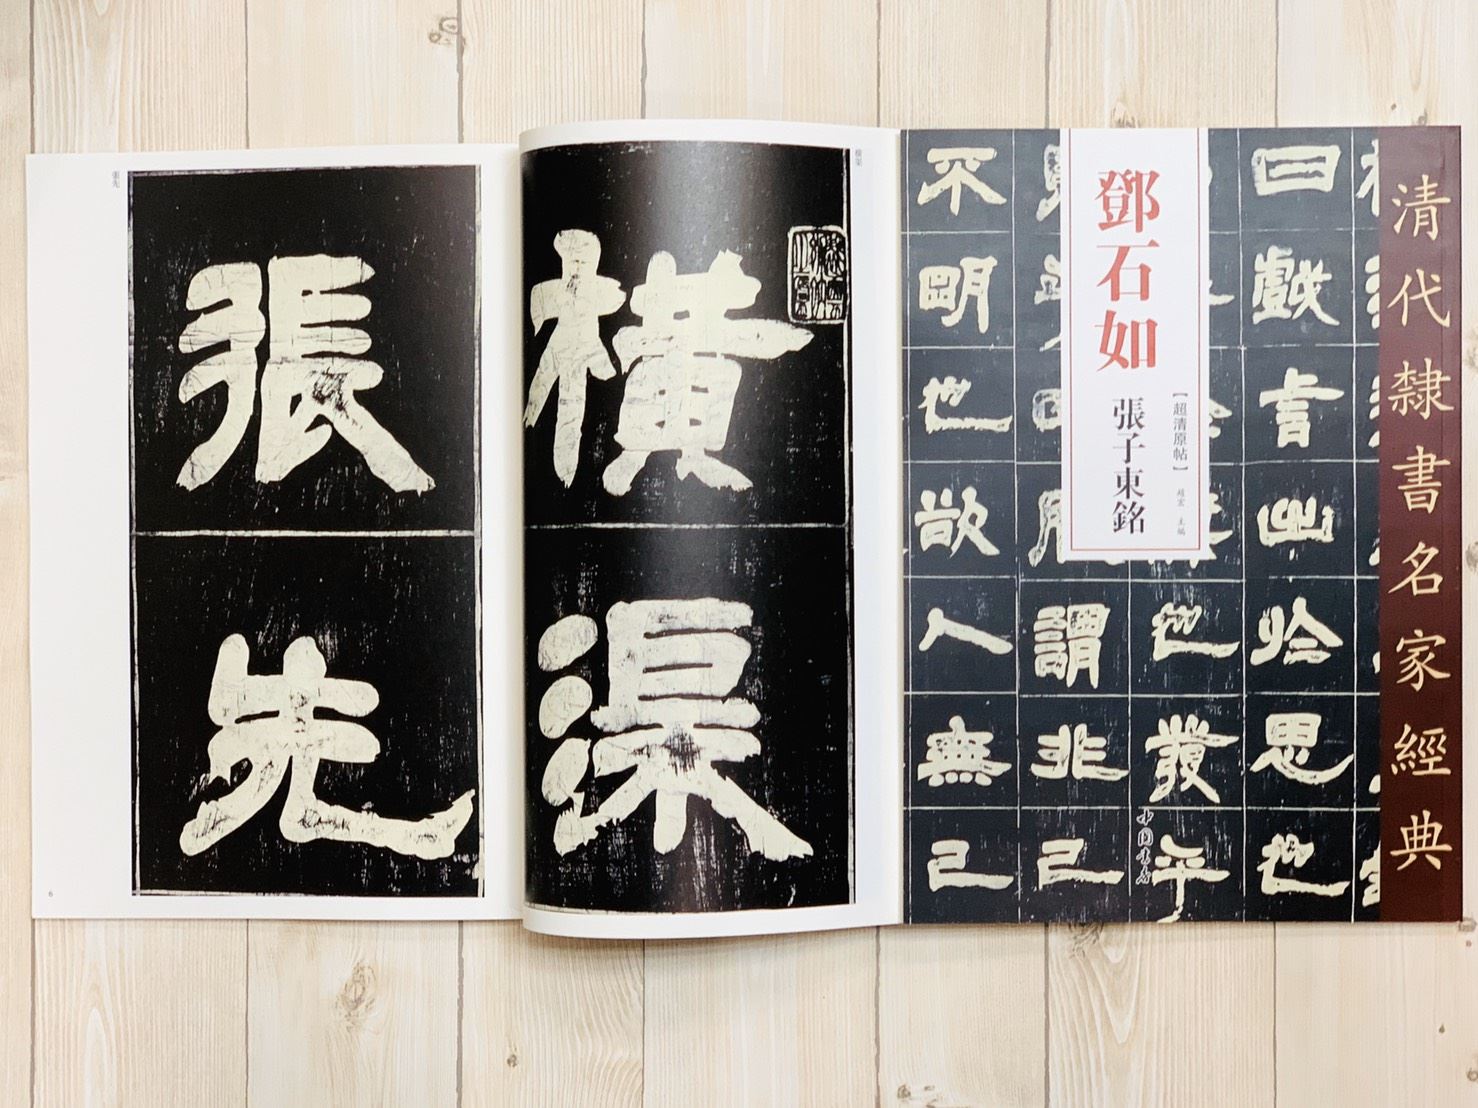 清代隸書名家經典
鄧石如
【超清原帖】
張子東銘
中國書店
曰戲言出於思也
也發乎
謂非己
不明也欲人無己
橫渠
橫渠
張先
張先
6